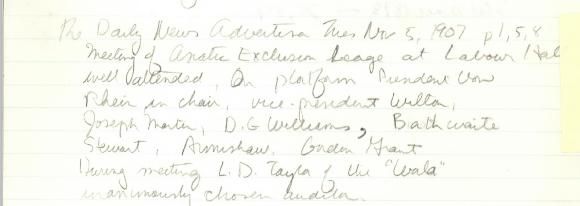 The Daily News Advertiser Tues Nov 5, 1907 p1,5,8
Meeting of Asiatic Exclusion League at Labour Hall
well attended, On platform President Von
Rhein in chair, vice-president Wilton,
Joseph Martin, D.G Williams, Bathwaite
Stewart, Armishaw, Gordon Grant
During meeting L.D. Taylor of the "World"
unanimously chosen auditor.